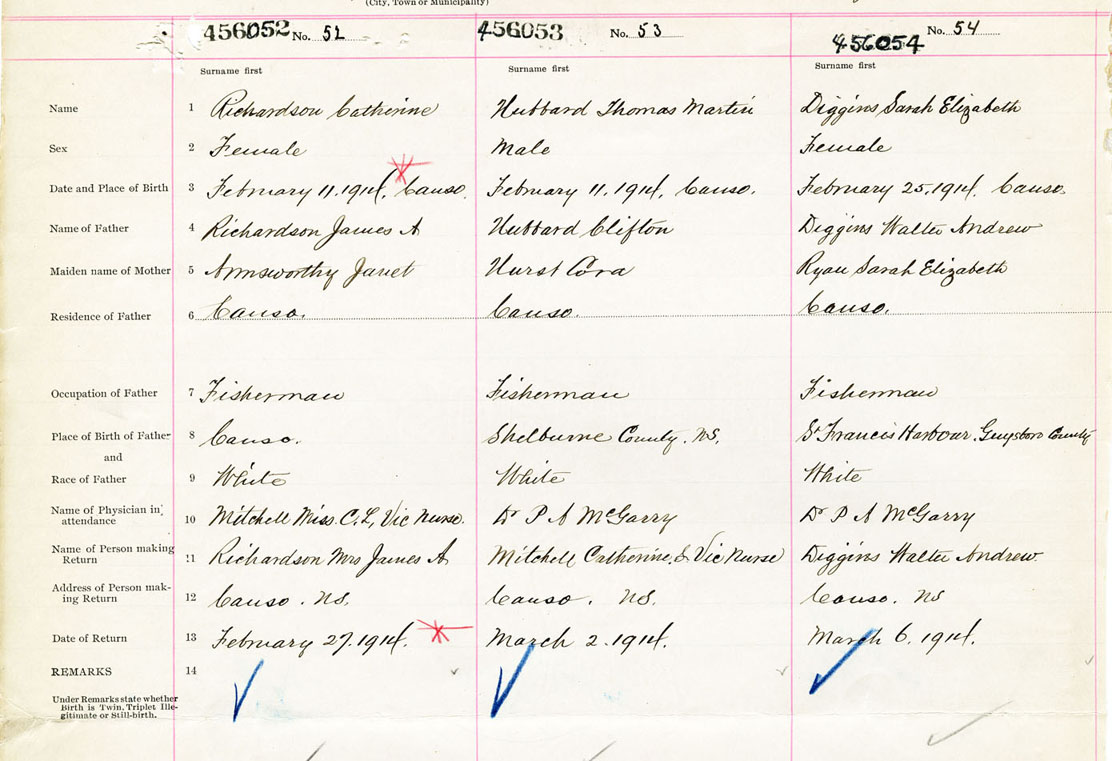 (City, Town or Municipality)
456052 No. 52 456053 No. 53 456054 No. 54
Surname first Surname first Surname first
Name 1 Richardson Catherine Hubbard Thomas Martin Diggins Sarah Elizabeth
Sex 2 Female Male Female
Date and Place of Birth 3 February 11. 1914. Canso. February 11. 1914. Canso. February 25. 1914. Canso.
Name of Father 4 Richardson James A Hubbard Clifton Diggins Walter Andrew
Maiden name of Mother 5 Armsworthy Janet Hurst Cora Ryan Sarah Elizabeth
Residence of Father 6 Canso. Canso. Canso.
Occupation of Father 7 Fisherman Fisherman Fisherman
Place of Birth of Father 8 Canso. Shelburne County. NS. St Francis Harbour. Guysboro County
and
Race of Father 9 White White White
Name of Physician in attendance 10 Mitchell Miss. C. L, Vic Nurse. Dr P A McGarry Dr P A McGarry
Name of Person making Return 11 Richardson Mrs James A Mitchell Catherine. L Vic Nurse Diggins Walter Andrew
Address of Person mak-
ing Return 12 Canso. NS. Canso. NS. Canso. NS
Date of Return 13 February 27. 1914. March 2. 1914. March 6. 1914.
REMARKS 14
Under Remarks state whether
Birth is Twin, Triplet Ille-
gitimate or Still-birth.